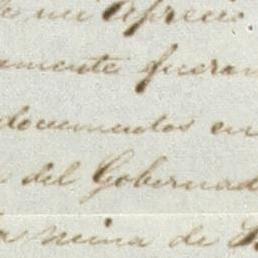 de mi aprecio
amente fueran
documentos en
del Gobernad
la reina de